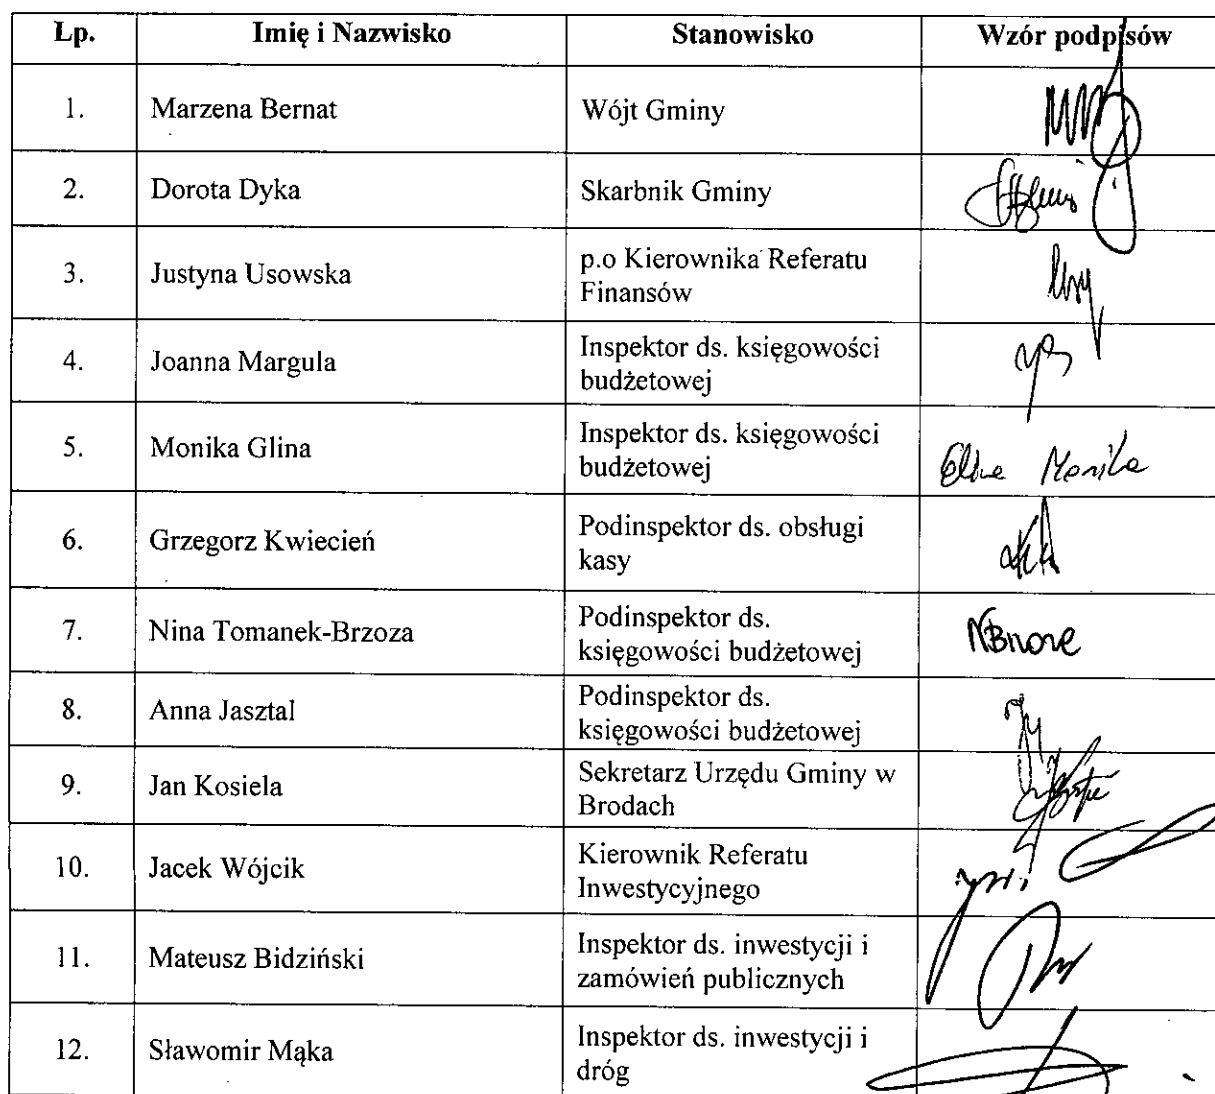 Lp. Imię i Nazwisko Stanowisko Wzór podpisów
1. Marzena Bernat Wójt Gminy
2. Dorota Dyka Skarbnik Gminy
3. Justyna Usowska p.o Kierownika Referatu
Finansów
4. Joanna Margula Inspektor ds. księgowości
budżetowej
5. Monika Glina Inspektor ds. księgowości
budżetowej
Glina Monika
6. Grzegorz Kwiecień Podinspektor ds. obsługi
kasy
7. Nina Tomanek-Brzoza Podinspektor ds.
księgowości budżetowej
8. Anna Jasztal Podinspektor ds.
księgowości budżetowej
9. Jan Kosiela Sekretarz Urzędu Gminy w
Brodach
10. Jacek Wójcik Kierownik Referatu
Inwestycyjnego
11. Mateusz Bidziński Inspektor ds. inwestycji i
zamówień publicznych
12. Sławomir Mąka Inspektor ds. inwestycji i
dróg